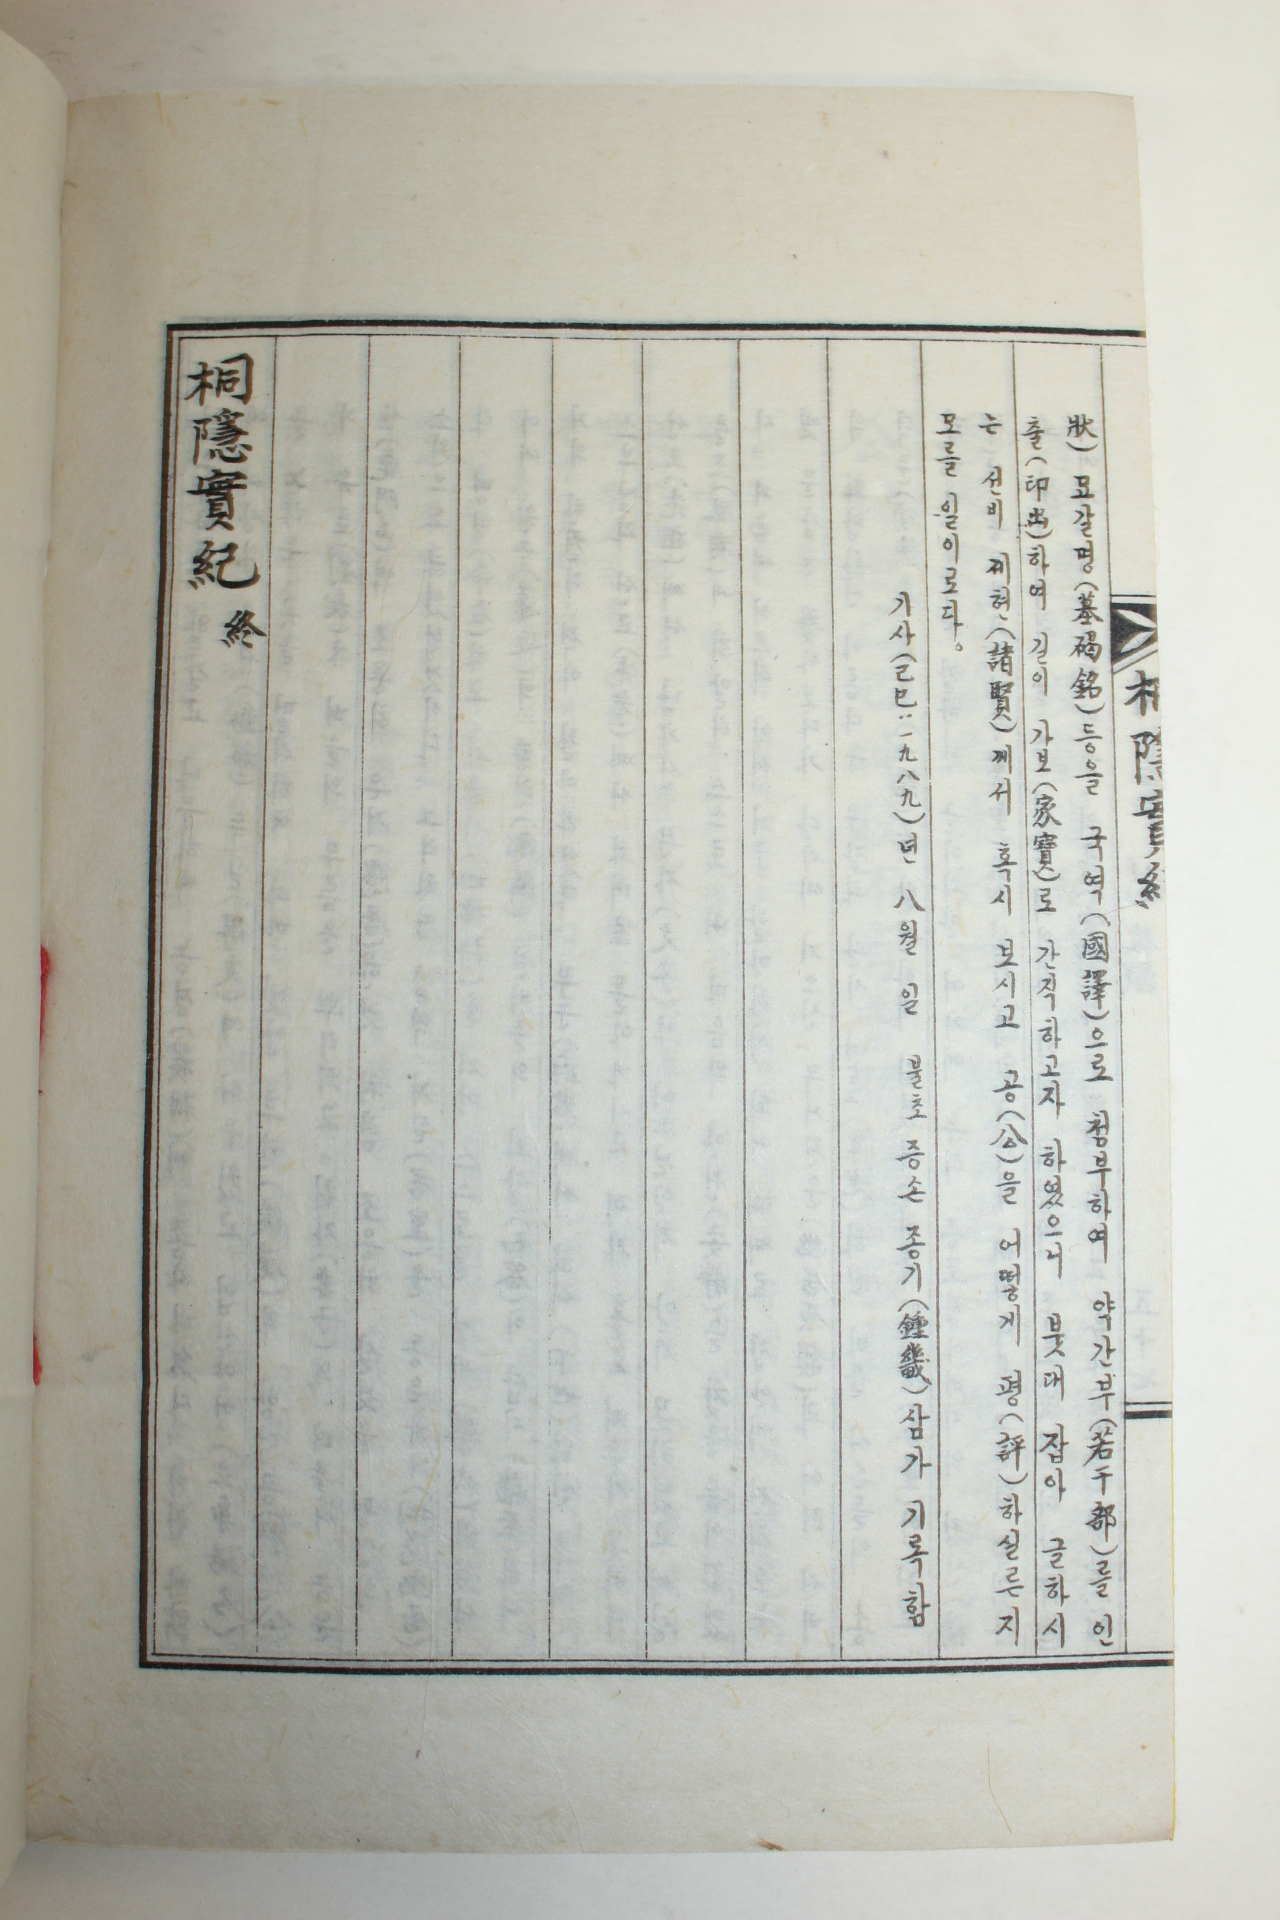 桐隱實紀
狀)묘갈명(墓碣銘)등을 국역(國譯)으로 첨부하여 약간부(若干部)를 인
출(印出)하여 길이 가보(家寶)로 간직하고자 하였으니 붓대 잡아 글하시
는 선비 제현(諸賢)께서 혹시 보시고 공(公)을 어떻게 평(評)하실른지
모를 일이로다。
기사(己巳:一九八九)년 八월 일 불초 증손 종기(鍾畿)삼가 기록함
桐隱實紀 終